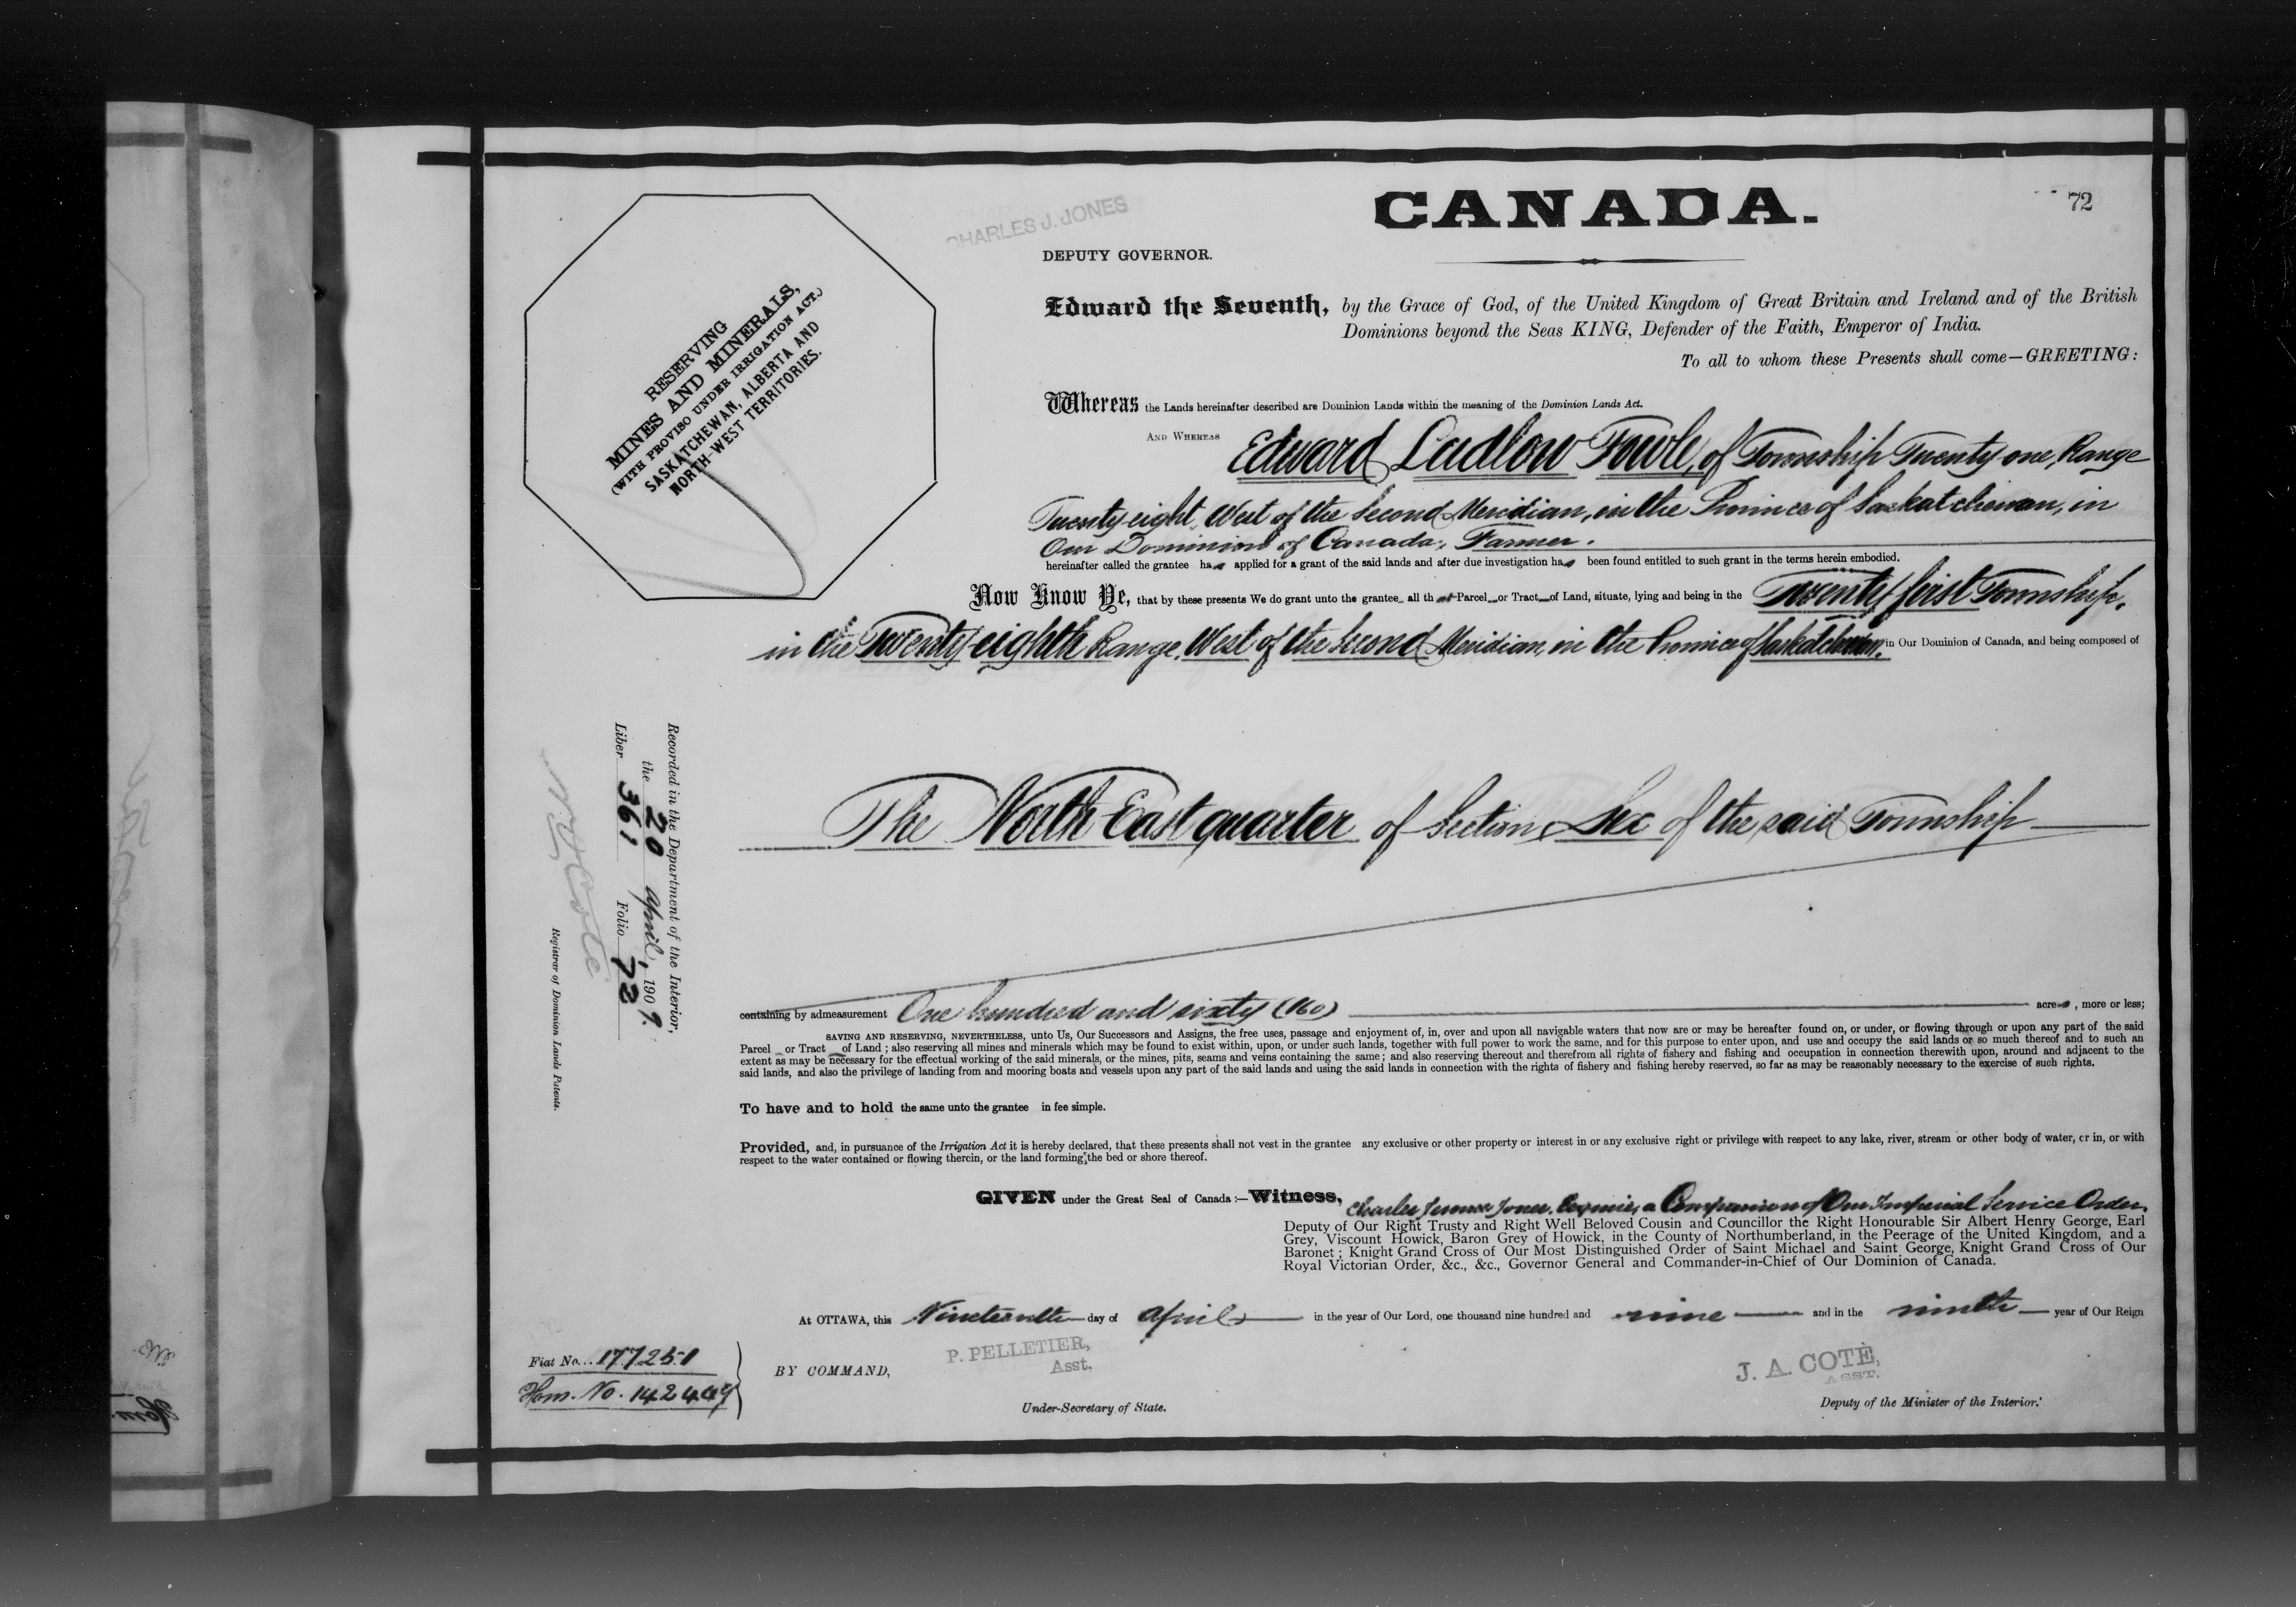 CANADA.
72
CHARLES J. JONES
DEPUTY GOVERNOR.
RESERVING
MINES AND MINERALS,
(WITH PROVISO UNDER IRRIGATION ACT.)
SASKATCHEWAN, ALBERTA AND
NORTH-WEST TERRITORIES.
Edward the Seventh, by the Grace of God, of the United Kingdom of Great Britain and Ireland and of the British
Dominions beyond the Seas KING, Defender of the Faith, Emperor of India.
To all to whom these Presents shall come—GREETING:
Whereas the Lands hereinafter described are Dominion Lands within the meaning of the Dominion Lands Act.
AND WHEREAS Edward Ludlow Fowle, of Township Twenty one, Range
Twenty eight, West of the Second Meridian, in the Province of Saskatchewan, in
Our Dominion of Canada, Farmer.
hereinafter called the grantee has applied for a grant of the said lands and after due investigation has been found entitled to such grant in the terms herein embodied.
Now Know Ye, that by these presents We do grant unto the grantee all that Parcel or Tract of Land, situate, lying and being in the Twenty first Township,
in the Twenty eighth Range, West of the Second Meridian, in the Province of Saskatchewan, in Our Dominion of Canada, and being composed of
The North East quarter of Section Six of the said Township
containing by admeasurement One hundred and sixty (160) acres, more or less;
SAVING AND RESERVING, NEVERTHELESS, unto Us, Our Successors and Assigns, the free uses, passage and enjoyment of, in, over and upon all navigable waters that now are or may be hereafter found on, or under, or flowing through or upon any part of the said
Parcel or Tract of Land; also reserving all mines and minerals which may be found to exist within, upon, or under such lands, together with full power to work the same, and for this purpose to enter upon, and use and occupy the said lands or so much thereof and to such an
extent as may be necessary for the effectual working of the said minerals, or the mines, pits, seams and veins containing the same; and also reserving thereout and therefrom all rights of fishery and fishing and occupation in connection therewith upon, around and adjacent to the
said lands, and also the privilege of landing from and mooring boats and vessels upon any part of the said lands and using the said lands in connection with the rights of fishery and fishing hereby reserved, so far as may be reasonably necessary to the exercise of such rights.
To have and to hold the same unto the grantee in fee simple.
Provided, and, in pursuance of the Irrigation Act it is hereby declared, that these presents shall not vest in the grantee any exclusive or other property or interest in or any exclusive right or privilege with respect to any lake, river, stream or other body of water, or in, or with
respect to the water contained or flowing therein, or the land forming the bed or shore thereof.
GIVEN under the Great Seal of Canada:—Witness, Charles Jones, Esquire, a Companion of Our Imperial Service Order,
Deputy of Our Right Trusty and Right Well Beloved Cousin and Councillor the Right Honourable Sir Albert Henry George, Earl
Grey, Viscount Howick, Baron Grey of Howick, in the County of Northumberland, in the Peerage of the United Kingdom, and a
Baronet; Knight Grand Cross of Our Most Distinguished Order of Saint Michael and Saint George, Knight Grand Cross of Our
Royal Victorian Order, &c., &c., Governor General and Commander-in-Chief of Our Dominion of Canada.
At OTTAWA, this Nineteenth day of April in the year of Our Lord, one thousand nine hundred and nine and in the ninth year of Our Reign
BY COMMAND,
P. PELLETIER,
Asst.
Under-Secretary of State.
J. A. COTÉ,
ASST.
Deputy of the Minister of the Interior.
Fiat No. 177251
Hom. No. 142449
Recorded in the Department of the Interior,
the 20 April, 1909.
Liber 361 Folio 72
Registrar of Dominion Lands Patents.